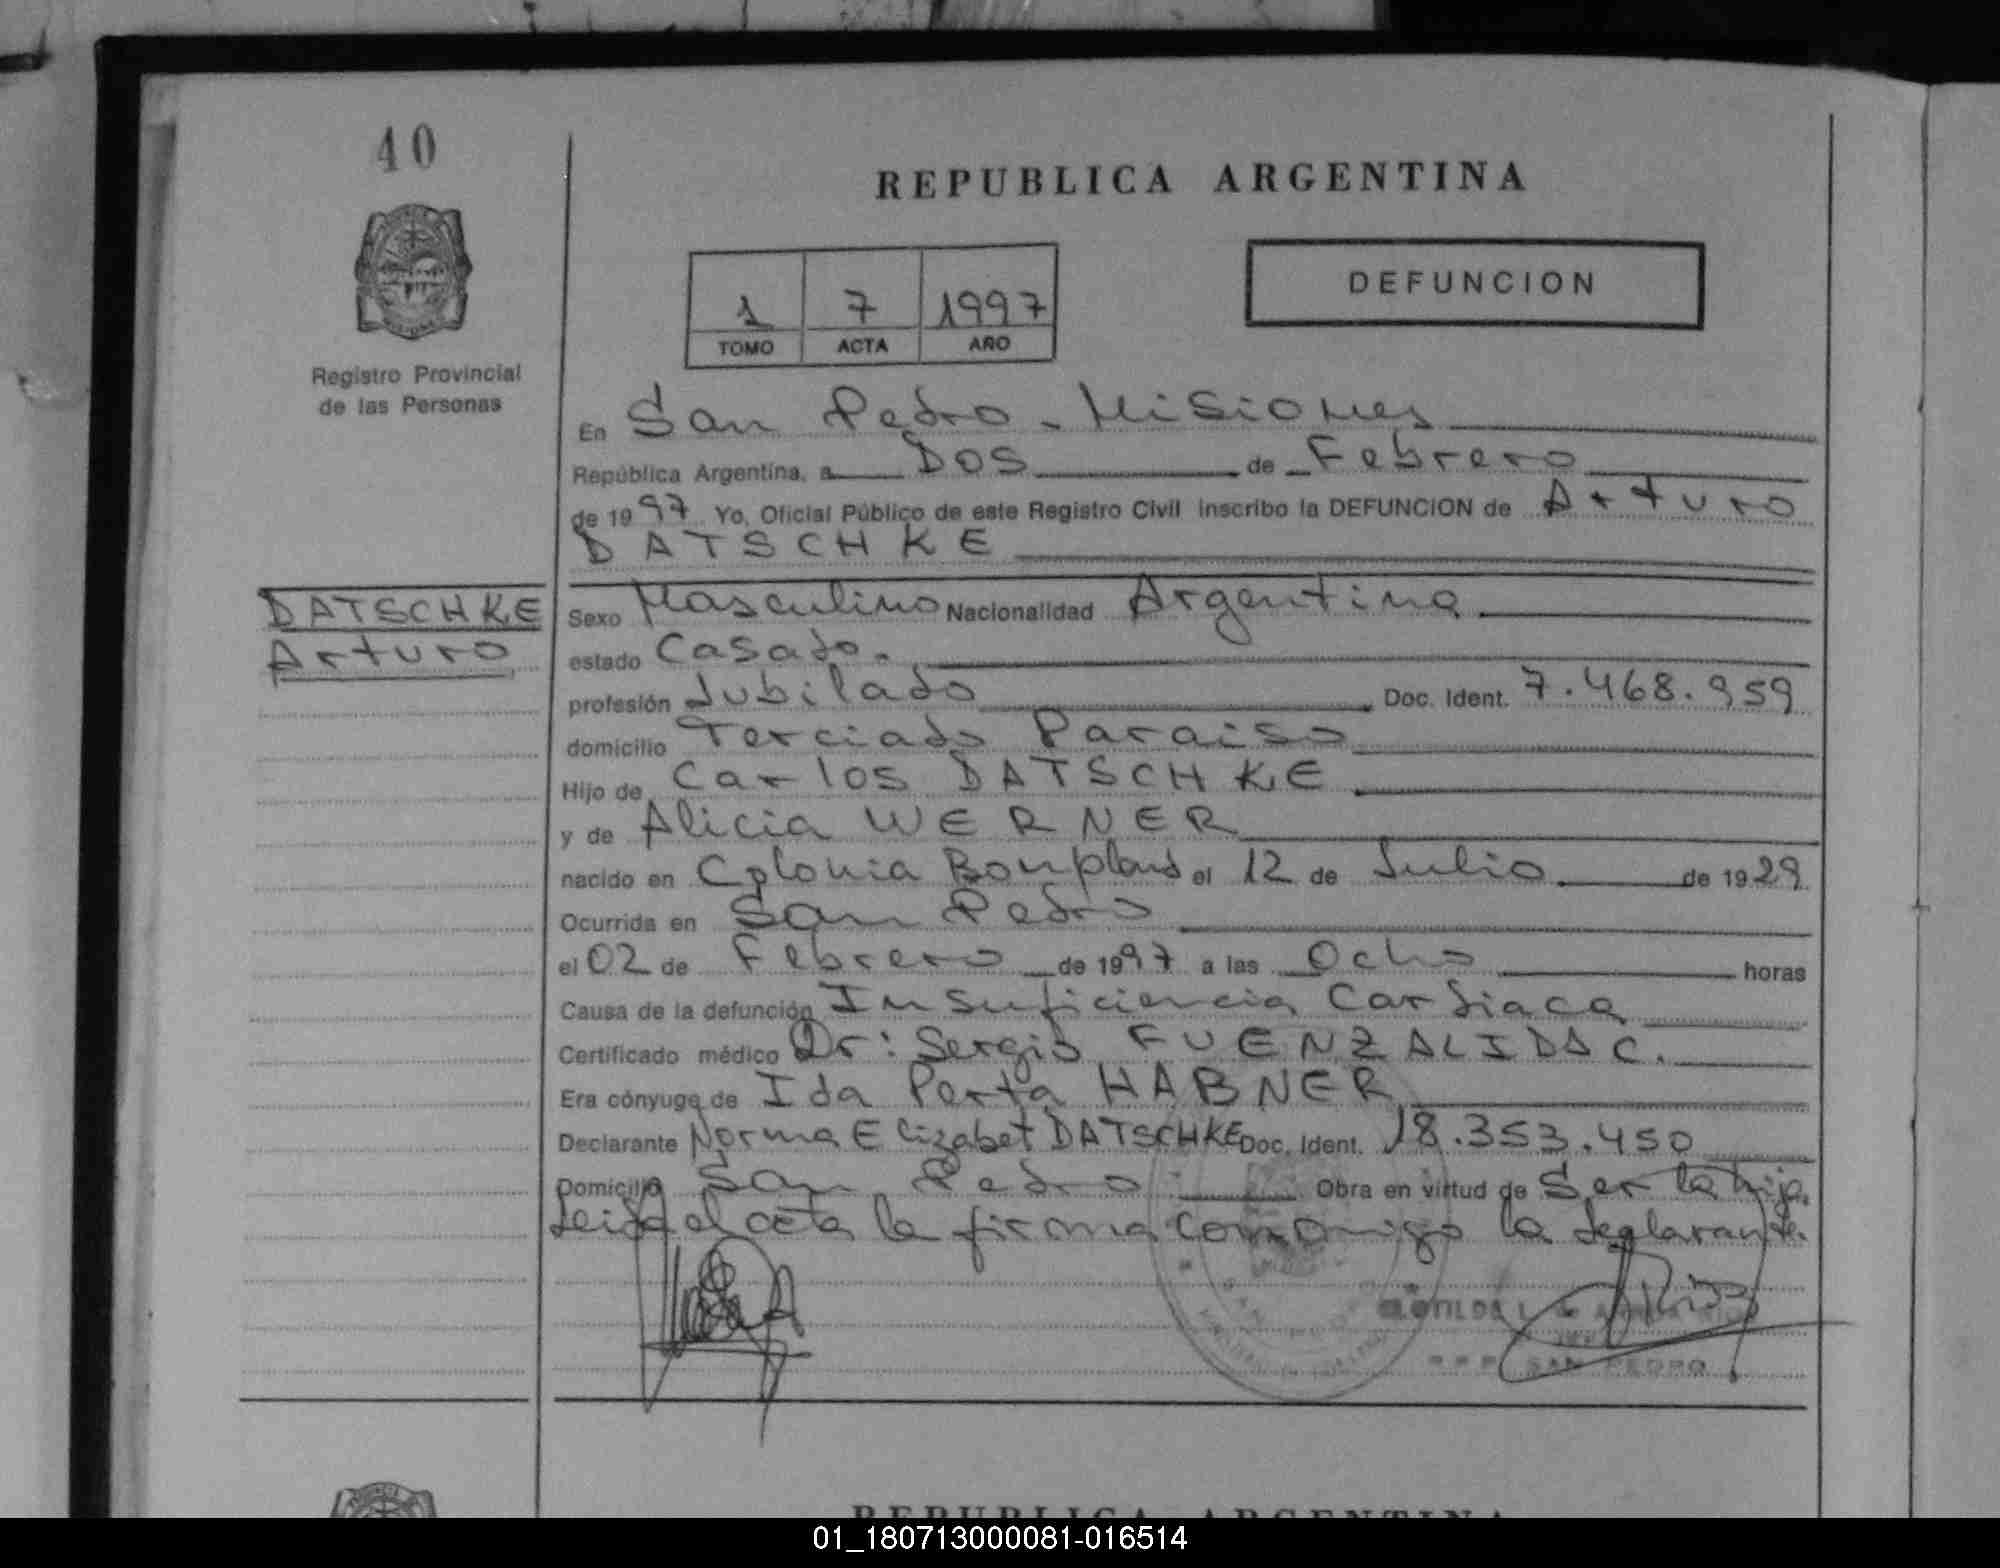 40
REPUBLICA ARGENTINA
1 7 1997
TOMO ACTA AÑO
DEFUNCION
Registro Provincial
de las Personas
En San Pedro - Misiones
República Argentina, a Dos de Febrero
de 1997 Yo, Oficial Público de este Registro Civil inscribo la DEFUNCION de Arturo
DATSCHKE
DATSCHKE
Arturo
Sexo Masculino Nacionalidad Argentina
estado Casado.
profesión Jubilado Doc. Ident. 7.468.959
domicilio Terciado Paraiso
Hijo de Carlos DATSCHKE
y de Alicia WERNER
nacido en Colonia Bonpland el 12 de Julio de 1929
Ocurrida en San Pedro
el 02 de Febrero de 1997 a las Ocho horas
Causa de la defunción Insuficiencia Cardiaca
Certificado médico Dr: Sergio FUENZALIDA C.
Era cónyuge de Ida Perta HABNER
Declarante Norma Elizabet DATSCHKE Doc. Ident. 18.353.450
Domicilio San Pedro Obra en virtud de Ser la hija.
Leida el acta la firma conmigo la declarante.
CLOTILDE
SAN PEDRO
REPUBLICA ARGENTINA
01_180713000081-016514